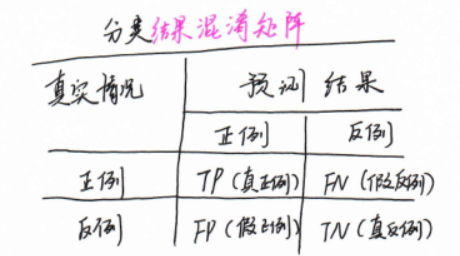 分类结果混淆矩阵
真实情况 预测结果
正例 反例
正例 TP(真正例) FN(假反例)
反例 FP(假正例) TN(真反例)